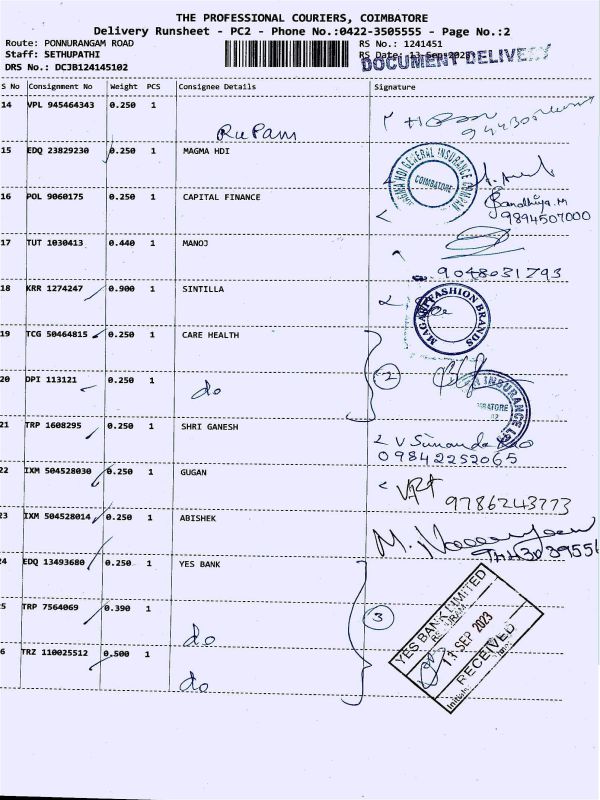 THE PROFESSIONAL COURIERS, COIMBATORE
Delivery Runsheet - PC2 - Phone No.:0422-3505555 - Page No.:2
Route: PONNURANGAM ROAD
Staff: SETHUPATHI
DRS No.: DCJB124145102
RS No.: 1241451
RS Date: 13-Sep-2023
DOCUMENT DELIVERY
S No Consignment No Weight PCS Consignee Details Signature
14 VPL 945464343 0.250 1
Rupam
15 EDQ 23829230 0.250 1 MAGMA HDI
MAGMA HDI GENERAL INSURANCE
COIMBATORE
16 POL 9060175 0.250 1 CAPITAL FINANCE
9894507000
17 TUT 1030413 0.440 1 MANOJ
9048031793
18 KRR 1274247 0.900 1 SINTILLA
FASHION BRANDS
19 TCG 50464815 0.250 1 CARE HEALTH
20 DPI 113121 0.250 1
do
2
INSURANCE
21 TRP 1608295 0.250 1 SHRI GANESH
09842252065
22 IXM 504528030 0.250 1 GUGAN
9786243773
23 IXM 504528014 0.250 1 ABISHEK
24 EDQ 13493680 0.250 1 YES BANK
5 TRP 7564069 0.390 1
do
3
6 TRZ 110025512 0.500 1
do
YES BANK LIMITED
SEP 2023
RECEIVED